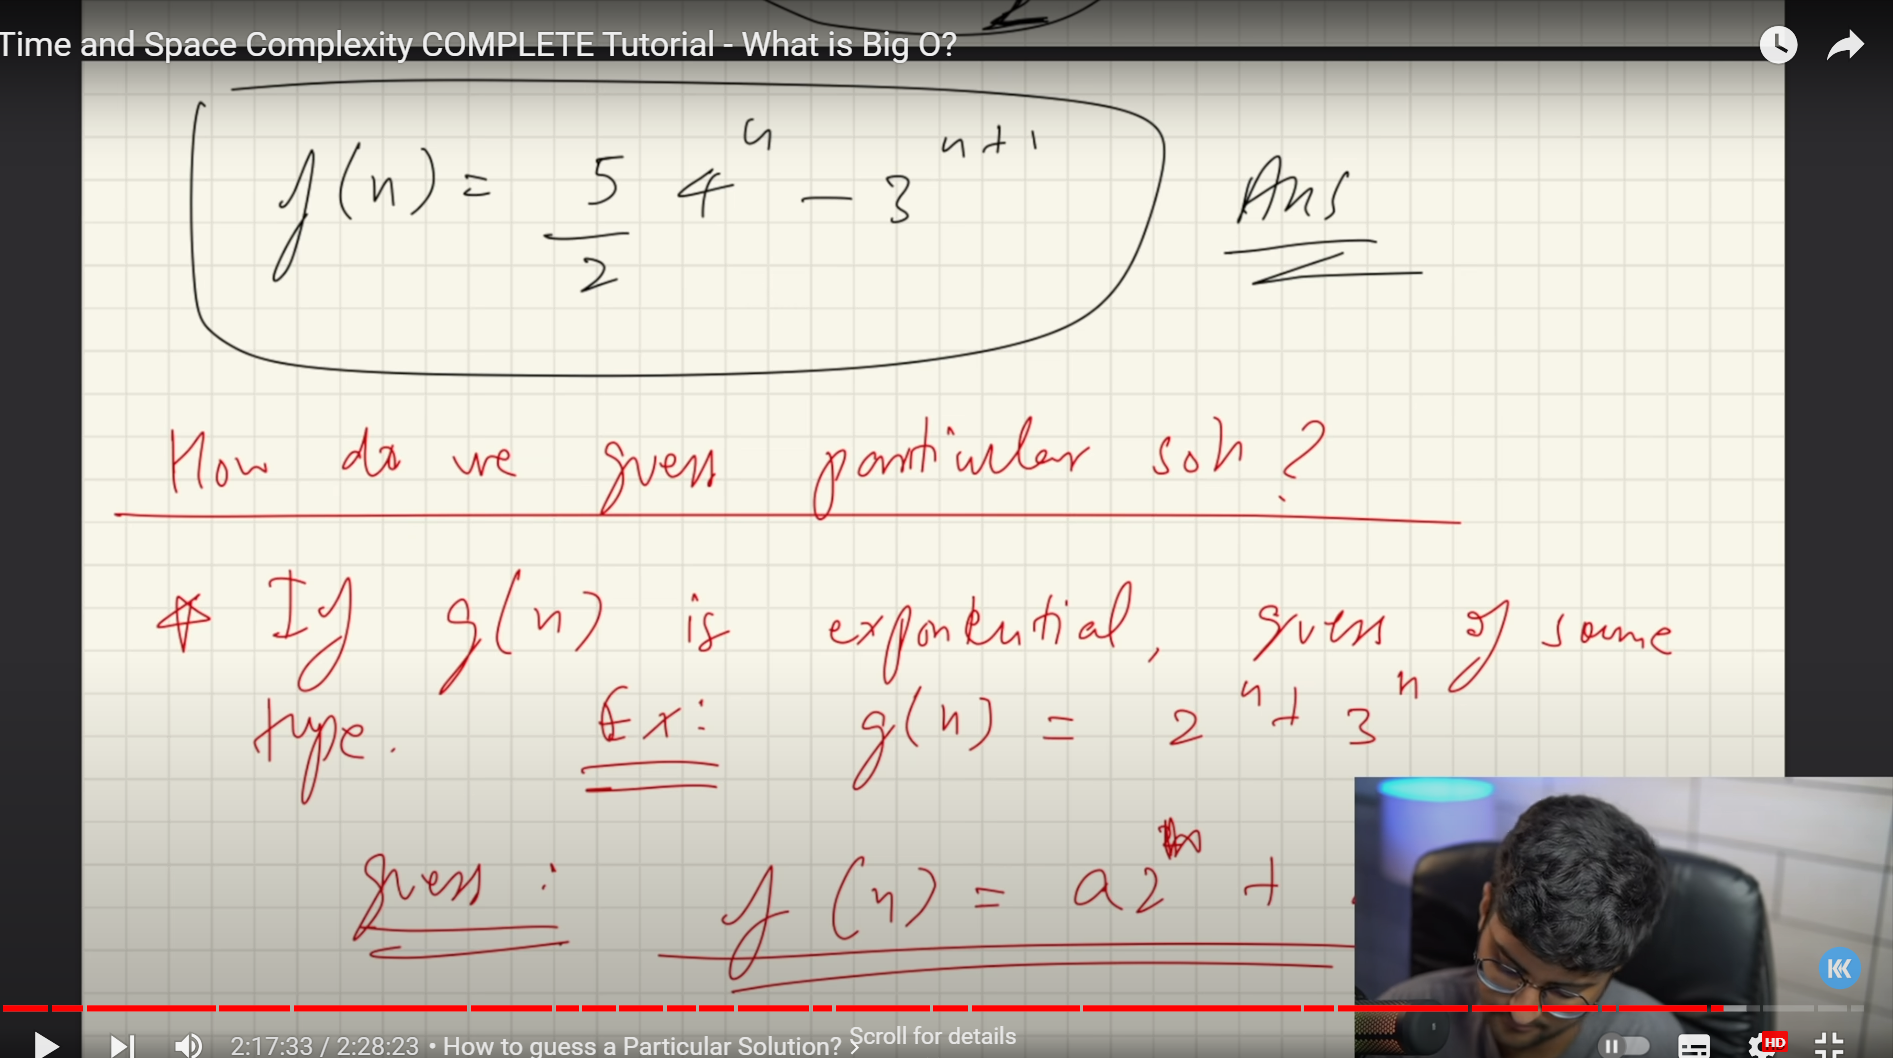 Time and Space Complexity COMPLETE Tutorial - What is Big O?
f(n) = 5/2 4^n - 3^(n+1) Ans
How do we guess particular soln?
* If g(n) is exponential, guess of same
type. Ex: g(n) = 2^n + 3^n
guess : f(n) = a2^n +
Scroll for details
2:17:33 / 2:28:23 • How to guess a Particular Solution? >
HD